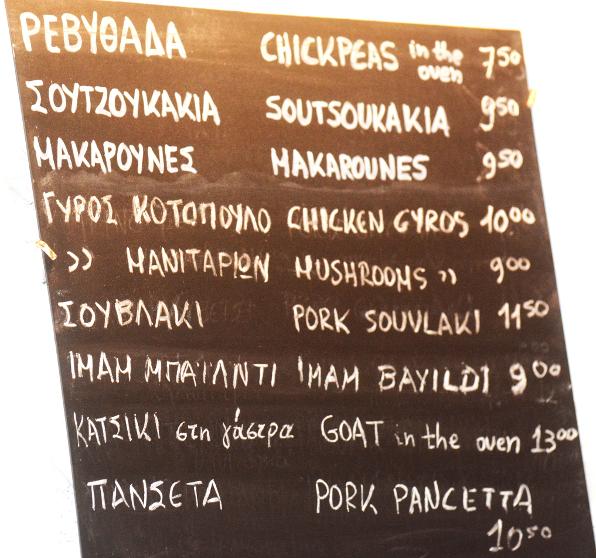 ΡΕΒΥΘΑΔΑ CHICKPEAS in the oven 750
ΣΟΥΤΖΟΥΚΑΚΙΑ SOUTSOUKAKIA 950
ΜΑΚΑΡΟΥΝΕΣ MAKAROUNES 950
ΓΥΡΟΣ ΚΟΤΟΠΟΥΛΟ CHICKEN GYROS 1000
›› ΜΑΝΙΤΑΡΙΩΝ MUSHROOMS ›› 900
ΣΟΥΒΛΑΚΙ PORK SOUVLAKI 1150
ΙΜΑΜ ΜΠΑΪΛΝΤΙ IMAM BAYILDI 900
ΚΑΤΣΙΚΙ στη γάστρα GOAT in the oven 1300
ΠΑΝΣΕΤΑ PORK PANCETTA
1050